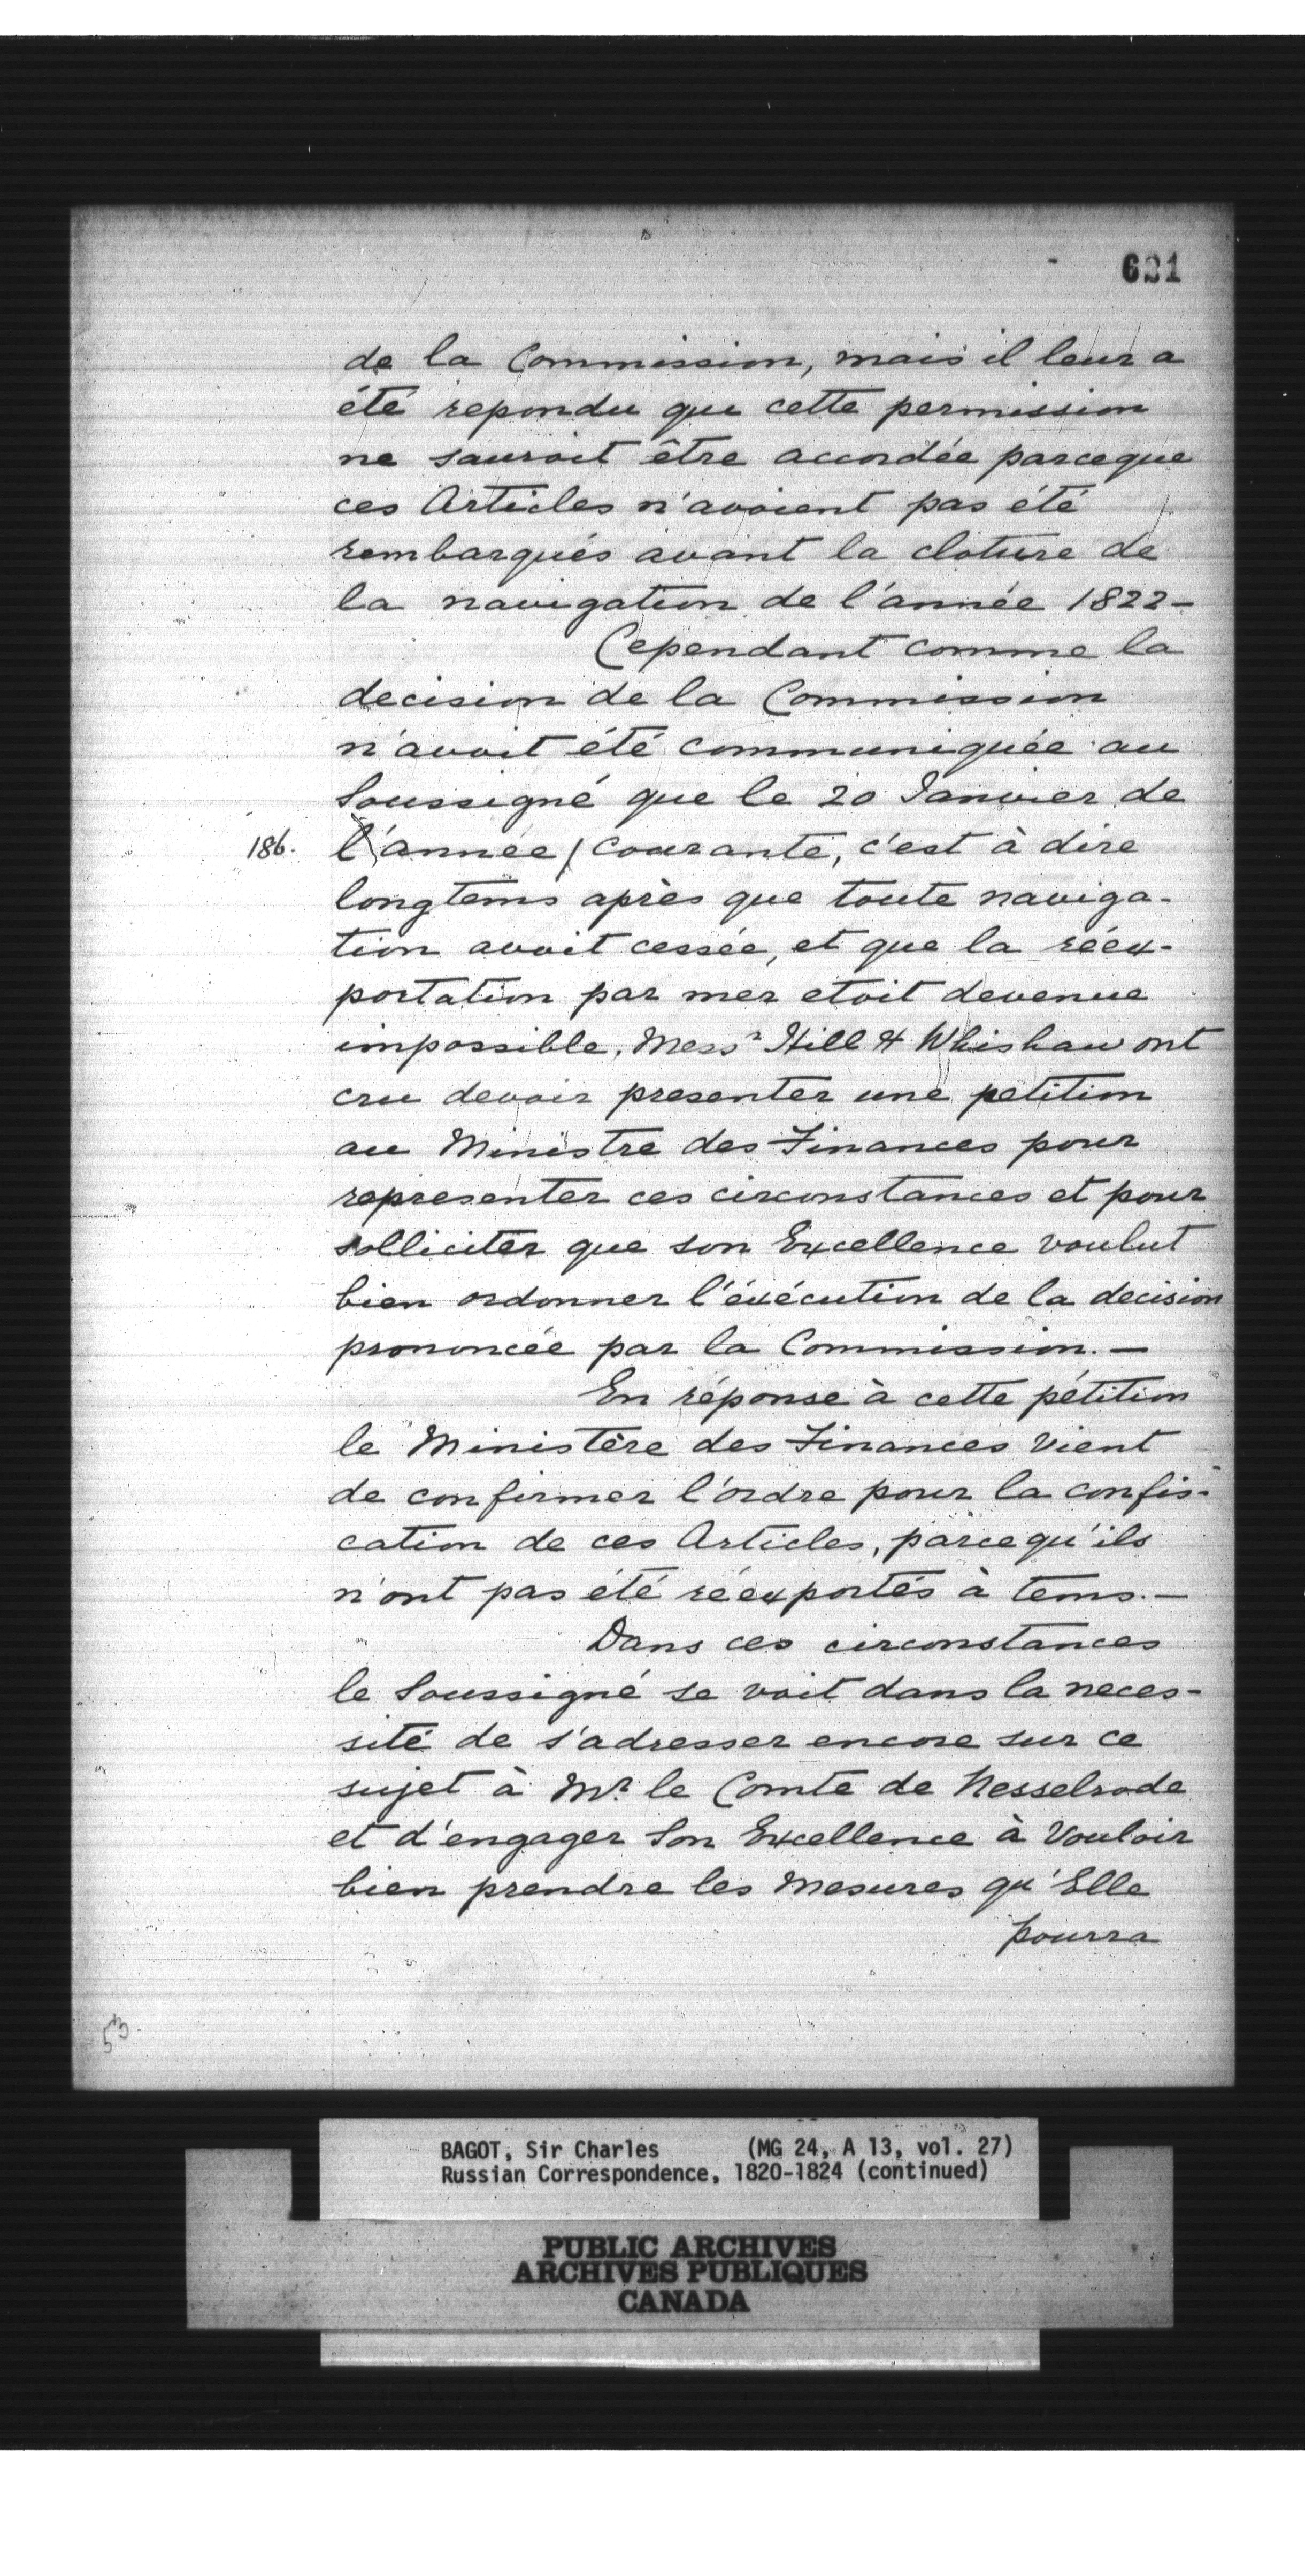 621
de la Commission, mais il leur a
été repondu que cette permission
ne sauroit être accordée parceque
ces Articles n'avoient pas été
rembarqués avant la cloture de
la navigation de l'année 1822-
Cependant comme la
decision de la Commission
n'avoit été communiquée au
Soussigné que le 20 Janvier de
186. l'année / courante, c'est à dire
longtems après que toute naviga-
tion avoit cessée, et que la réex-
portation par mer etoit devenue
impossible, Messrs Hill & Whishaw ont
cru devoir presenter une petition
au Ministre des Finances pour
representer ces circonstances et pour
solliciter que son Excellence voulut
bien ordonner l'éxécution de la decision
prononcée par la Commission. —
En réponse à cette pétition
le Ministère des Finances vient
de confirmer l'ordre pour la confis-
cation de ces Articles, parcequ'ils
n'ont pas été réexportés à tems. —
Dans ces circonstances
le Soussigné se voit dans la neces-
sité de s'adresser encore sur ce
sujet à Mr. le Comte de Nesselrode
et d'engager Son Excellence à Vouloir
bien prendre les Mesures qu'Elle
pourra
53
BAGOT, Sir Charles (MG 24, A 13, vol. 27)
Russian Correspondence, 1820-1824 (continued)
PUBLIC ARCHIVES
ARCHIVES PUBLIQUES
CANADA